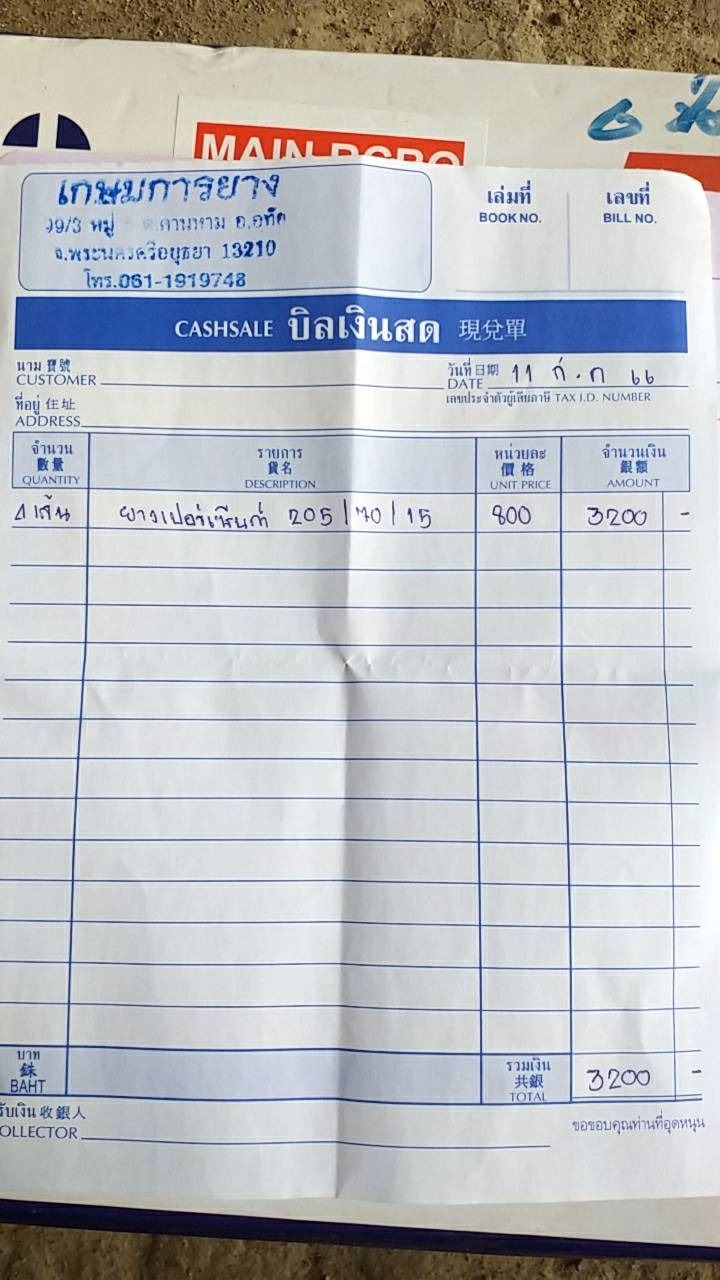 เกษมการยาง
99/3 หมู่ 5 ต.คานหาม อ.อุทัย
จ.พระนครศรีอยุธยา 13210
โทร.061-1919748
เล่มที่
BOOK NO.
เลขที่
BILL NO.
CASHSALE บิลเงินสด 現兌單
นาม 寶號
CUSTOMER
วันที่ 日期
DATE 11 ก.ค 66
ที่อยู่ 住址
ADDRESS
เลขประจำตัวผู้เสียภาษี TAX I.D. NUMBER
จำนวน รายการ หน่วยละ จำนวนเงิน
數量 貨名 價格 銀額
QUANTITY DESCRIPTION UNIT PRICE AMOUNT
4 เส้น ยางเปอร์เซ็นต์ 205/70/15 800 3200 -
บาท
銖
BAHT
รวมเงิน
共銀
TOTAL
3200 -
รับเงิน 收銀人
OLLECTOR
ขอขอบคุณท่านที่อุดหนุน